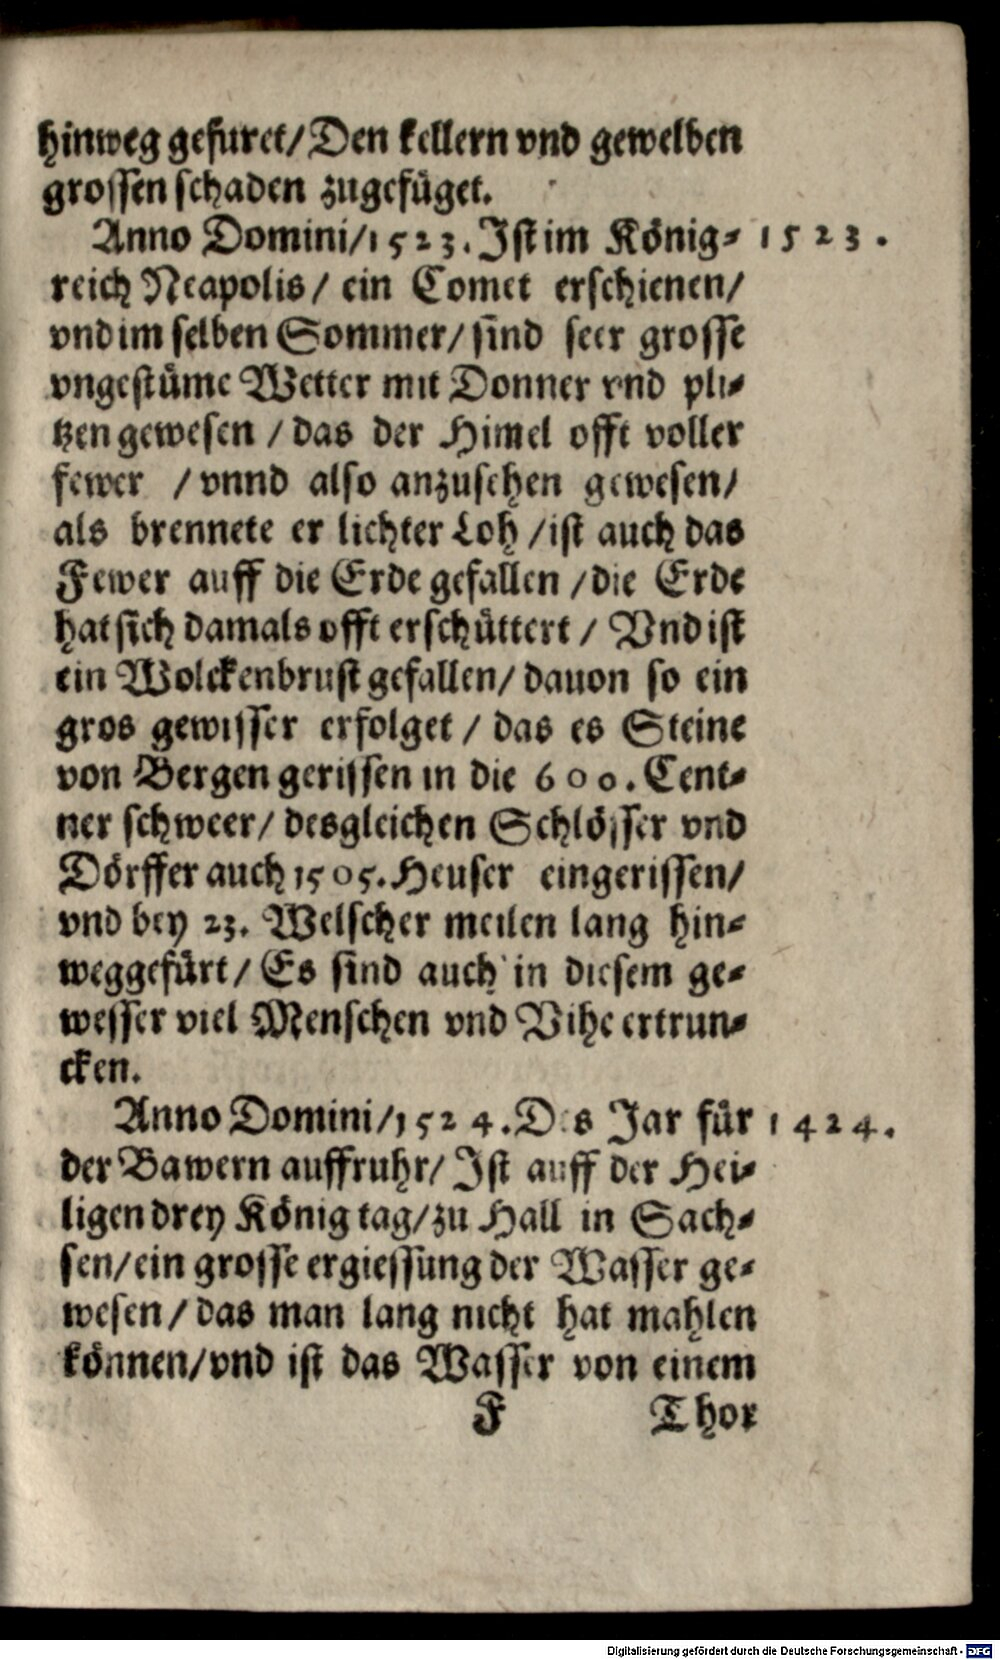 hinweg gefuret/Den kellern vnd gewelben
grossen schaden zugefüget.
Anno Domini/1523. Ist im König-
1523.
reich Neapolis/ ein Comet erschienen/
vnd im selben Sommer/ sind seer grosse
vngestüme Wetter mit Donner vnd pli-
tzen gewesen / das der Himel offt voller
fewer / vnnd also anzusehen gewesen/
als brennete er lichter Loh / ist auch das
Fewer auff die Erde gefallen / die Erde
hat sich damals offt erschüttert / Vnd ist
ein Wolckenbrust gefallen/ dauon so ein
gros gewisser erfolget / das es Steine
von Bergen gerissen in die 600. Cent-
ner schweer/ desgleichen Schlösser vnd
Dörffer auch 1505. Heuser eingerissen/
vnd bey 23. Welscher meilen lang hin-
weggefürt/ Es sind auch in diesem ge-
wesser viel Menschen vnd Vihe ertrun-
cken.
Anno Domini/1524. D s Jar für
1424.
der Bawern auffruhr/ Ist auff der Hei-
ligen drey König tag/zu Hall in Sach-
sen/ein grosse ergiessung der Wasser ge-
wesen/ das man lang nicht hat mahlen
können/vnd ist das Wasser von einem
F Thor
Digitalisierung gefördert durch die Deutsche Forschungsgemeinschaft - DFG